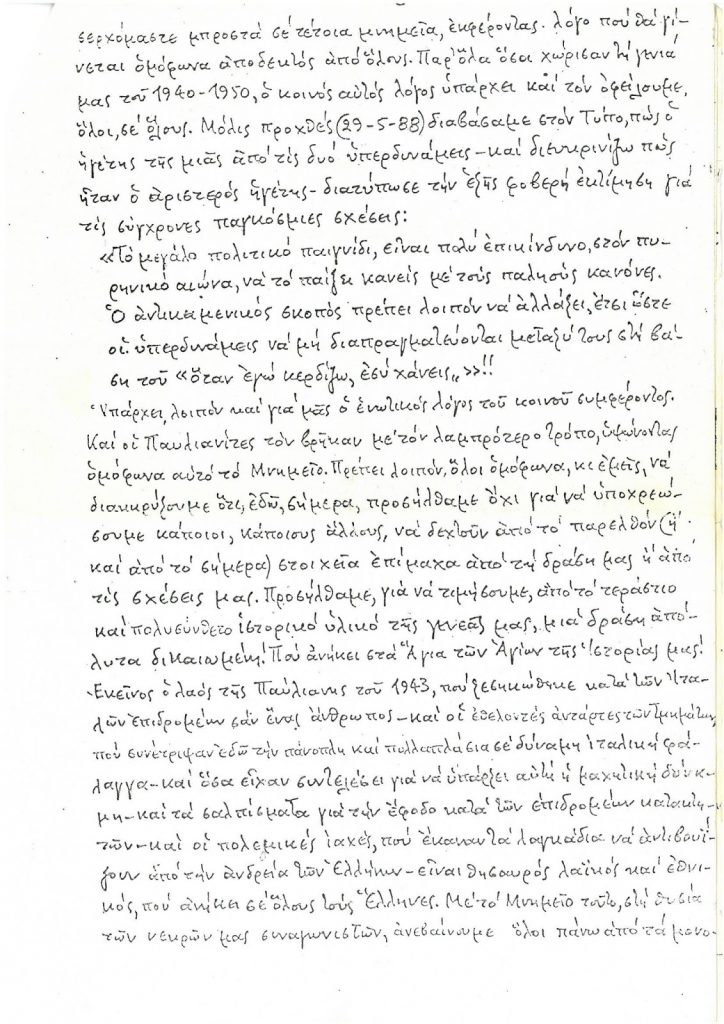 σερχόμαστε μπροστὰ σὲ τέτοια μνημεῖα, ἐκφέροντας. λόγο ποὺ θὰ γί-
νεται ὁμόφωνα ἀποδεκτὸς ἀπὸ ὅλους. Παρ' ὅλα ὅσα χώρισαν τὴ γενιά
μας τοῦ 1940-1950, ὁ κοινὸς αὐτὸς λόγος ὑπάρχει καὶ τὸν ὀφείλουμε,
ὅλοι, σὲ ὅλους. Μόλις προχθὲς (29-5-88) διαβάσαμε στὸν Τύπο, πὼς ὁ
ἡγέτης τῆς μιᾶς ἀπὸ τὶς δυὸ ὑπερδυνάμεις - καὶ διευκρινίζω πὼς
ἦταν ὁ ἀριστερὸς ἡγέτης - διατύπωσε τὴν ἑξῆς φοβερὴ ἐκτίμηση γιὰ
τὶς σύγχρονες παγκόσμιες σχέσεις:
«Τὸ μεγάλο πολιτικὸ παιγνίδι, εἶναι πολὺ ἐπικίνδυνο, στὸν πυ-
ρηνικὸ αἰώνα, νὰ τὸ παίζει κανεὶς μὲ τοὺς παληοὺς κανόνες.
Ὁ ἀντικειμενικὸς σκοπὸς πρέπει λοιπὸν νὰ ἀλλάξει, ἔτσι ὥστε
οἱ ὑπερδυνάμεις νὰ μὴ διαπραγματεύονται μεταξύ τους στὴ βά-
ση τοῦ «ὅταν ἐγὼ κερδίζω, ἐσὺ χάνεις„»!!
Ὑπάρχει, λοιπὸν καὶ γιὰ μᾶς ὁ ἑνωτικὸς λόγος τοῦ κοινοῦ συμφέροντος.
Καὶ οἱ Παυλιανίτες τὸν βρῆκαν μὲ τὸν λαμπρότερο τρόπο, ὑψώνοντας
ὁμόφωνα αὐτὸ τὸ Μνημεῖο. Πρέπει λοιπόν, ὅλοι ὁμόφωνα, κι ἐμεῖς, νὰ
διακηρύξουμε ὅτι, ἐδῶ, σήμερα, προσήλθαμε ὄχι γιὰ νὰ ὑποχρεώ-
σουμε κάποιοι, κάποιους ἄλλους, νὰ δεχτοῦν ἀπὸ τὸ παρελθὸν (ἢ
καὶ ἀπὸ τὸ σήμερα) στοιχεῖα ἐπίμαχα ἀπὸ τὴ δράση μας ἢ ἀπὸ
τὶς σχέσεις μας. Προσήλθαμε, γιὰ νὰ τιμήσουμε, ἀπὸ τὸ τεράστιο
καὶ πολυσύνθετο ἱστορικὸ ὑλικὸ τῆς γενεᾶς μας, μιὰ δράση ἀπό-
λυτα δικαιωμένη! Ποὺ ἀνήκει στὰ Ἅγια τῶν Ἁγίων τῆς Ἱστορίας μας!
Ἐκεῖνος ὁ λαὸς τῆς Παύλιανης τοῦ 1943, ποὺ ξεσηκώθηκε κατὰ τῶν Ἰτα-
λῶν ἐπιδρομέων σὰν ἕνας ἄνθρωπος - καὶ οἱ ἐθελοντὲς ἀντάρτες τῶν Τμημάτων,
ποὺ συνέτριψαν ἐδῶ τὴν πάνοπλη καὶ πολλαπλάσια σὲ δύναμη Ἰταλικὴ φά-
λαγγα - καὶ ὅσα εἶχαν συντελέσει γιὰ νὰ ὑπάρξει αὐτὴ ἡ μαχητικὴ δύνα-
μη - καὶ τὰ σαλπίσματα γιὰ τὴν ἔφοδο κατὰ τῶν ἐπιδρομέων κατακτη-
τῶν - καὶ οἱ πολεμικὲς ἰαχές, ποὺ ἔκαναν τὰ λαγκάδια νὰ ἀντιβουΐ-
ζουν ἀπὸ τὴν ἀνδρεία τῶν Ἑλλήνων - εἶναι θησαυρὸς λαϊκὸς καὶ ἐθνι-
κός, ποὺ ἀνήκει σὲ ὅλους τοὺς Ἕλληνες. Μὲ τὸ Μνημεῖο τοῦτο, στὴ θυσία
τῶν νεκρῶν μας συναγωνιστῶν, ἀνεβαίνουμε ὅλοι πάνω ἀπὸ τὰ μονο-